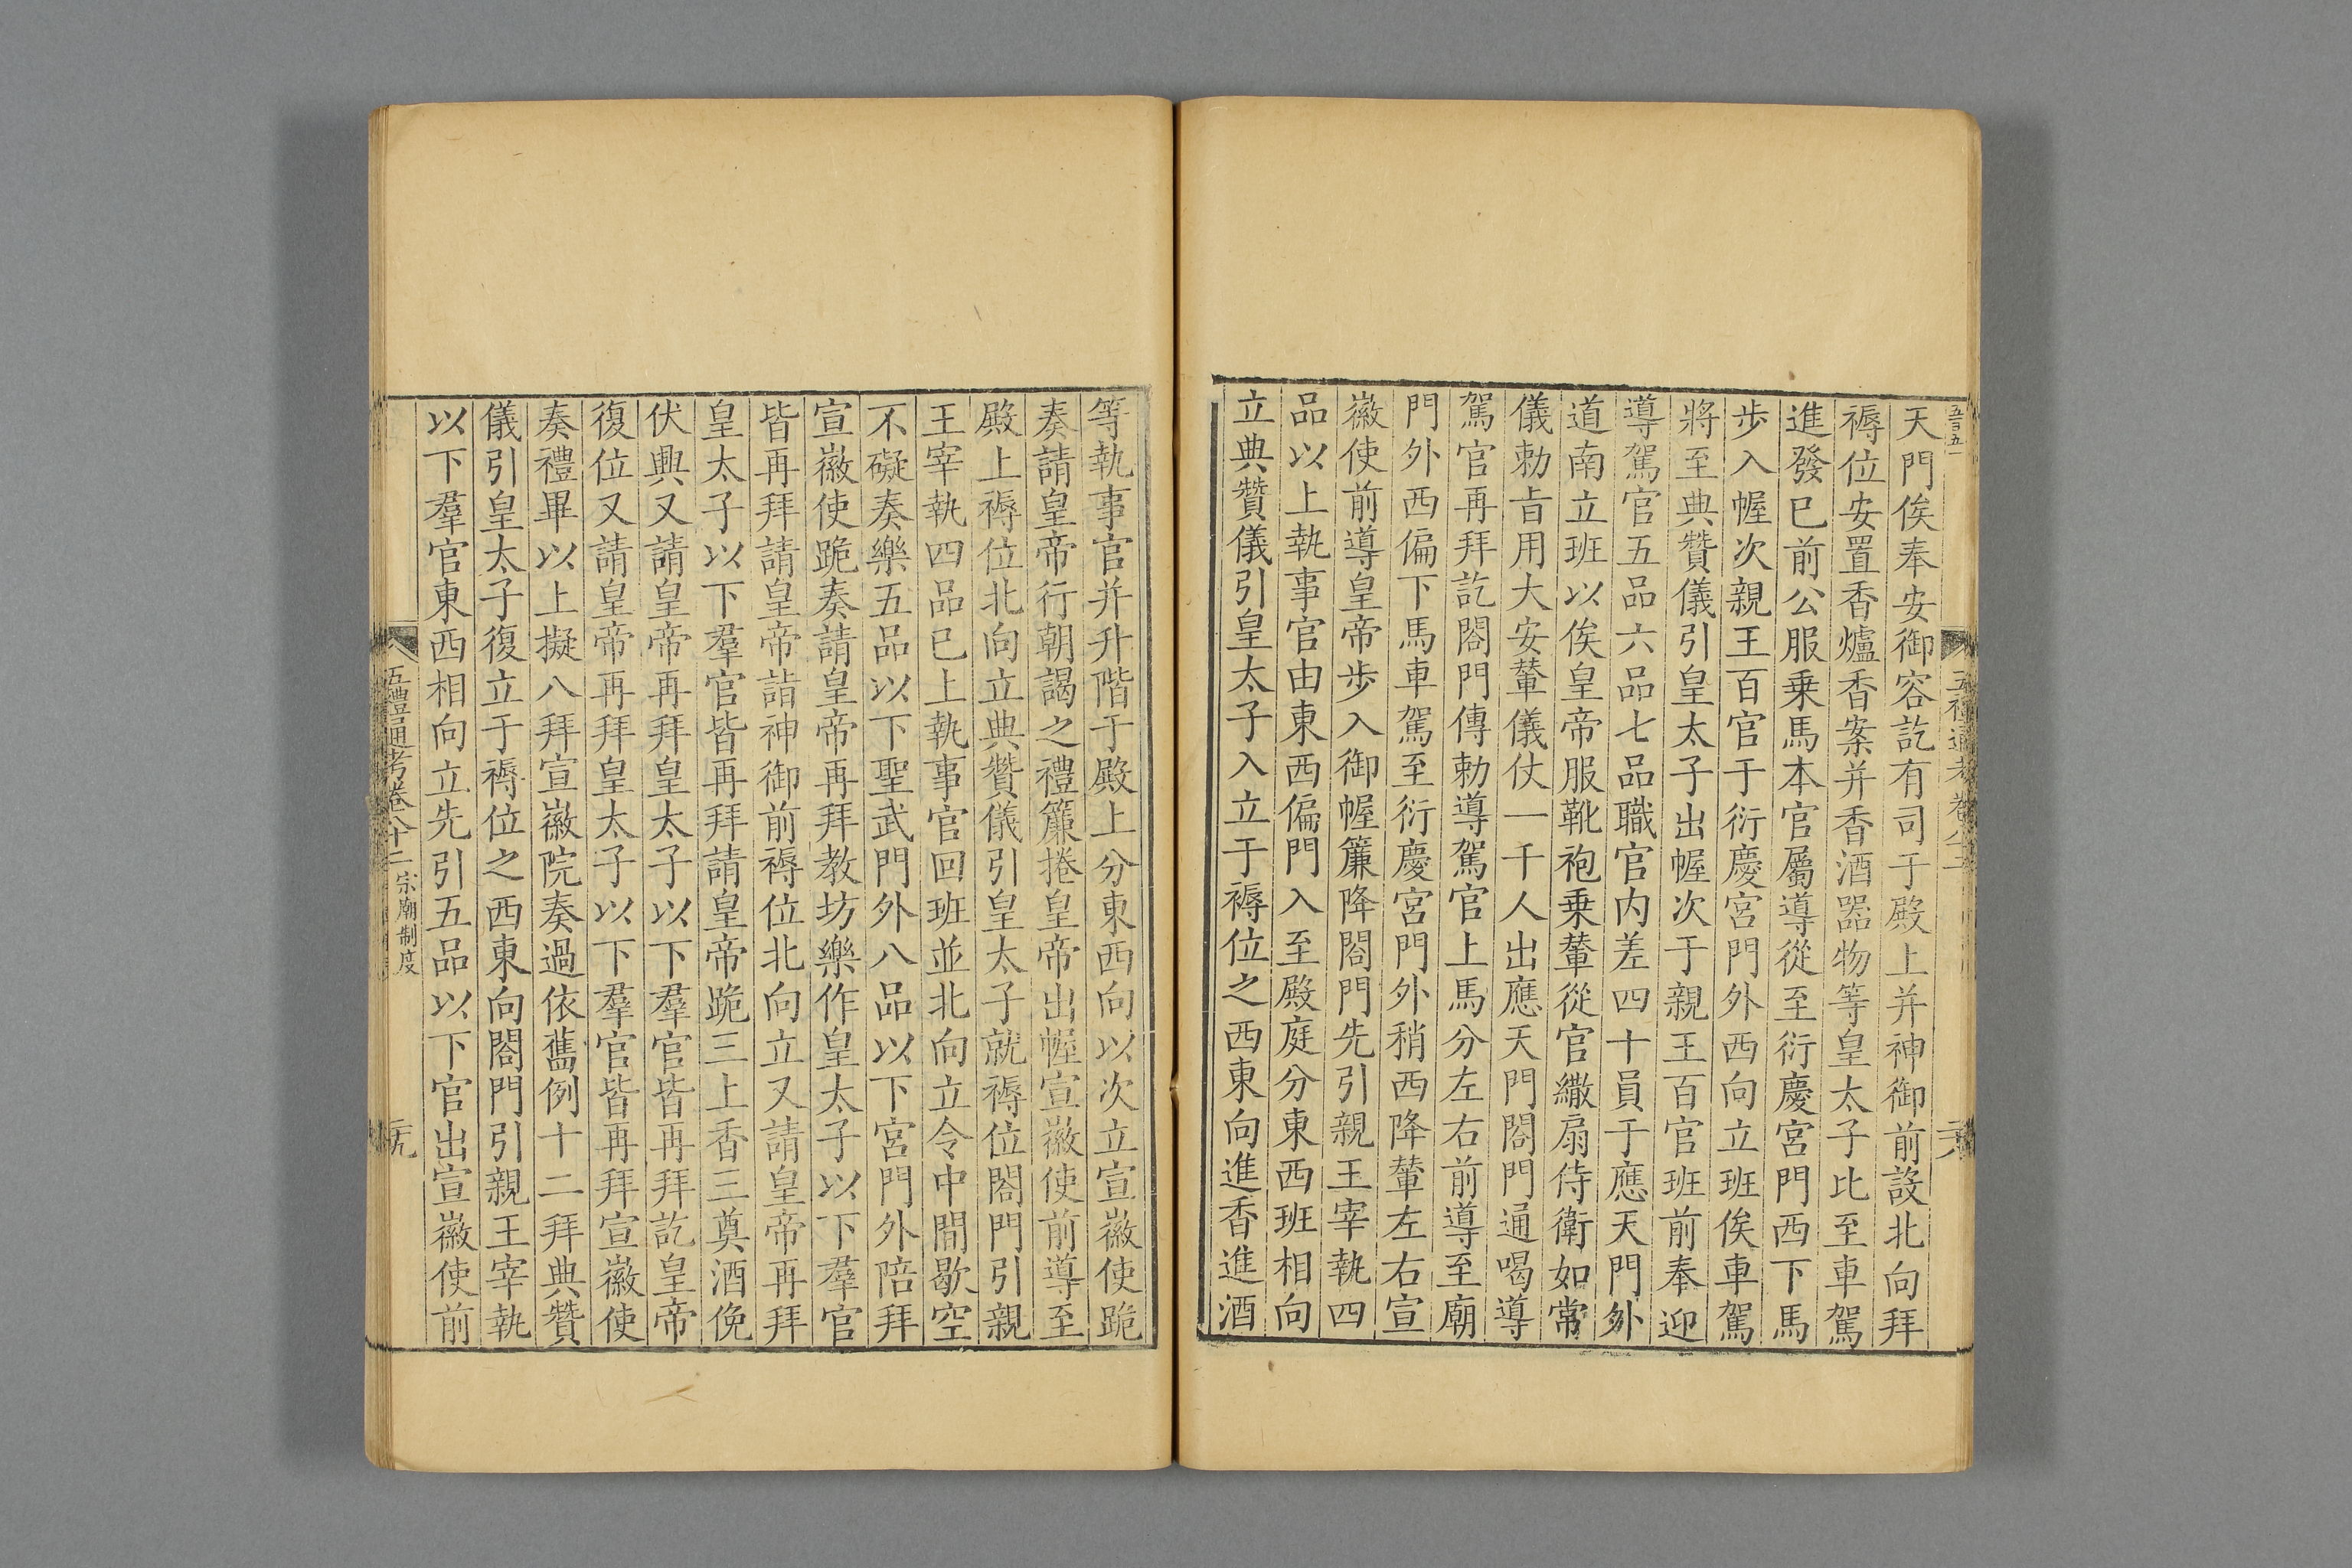 天門俟奉安御容訖有司于殿上并神御前設北向拜
褥位安置香爐香案并香酒器物等皇太子比至車駕
進發已前公服乗馬本官屬導從至衍慶宮門西下馬
步入幄次親王百官于衍慶宮門外西向立班俟車駕
將至典贊儀引皇太子出幄次于親王百官班前奉迎
導駕官五品六品七品職官内差四十員于應天門外
道南立班以俟皇帝服靴袍乗輦從官繖扇侍衛如常
儀勅㫖用大安輦儀仗一千人出應天門閤門通喝導
駕官再拜訖閤門傳勅導駕官上馬分左右前導至廟
門外西偏下馬車駕至衍慶宮門外稍西降輦左右宣
徽使前導皇帝步入御幄簾降閤門先引親王宰執四
品以上執事官由東西偏門入至殿庭分東西班相向
立典贊儀引皇太子入立于褥位之西東向進香進酒
等執事官并升階于殿上分東西向以次立宣徽使跪
奏請皇帝行朝謁之禮簾捲皇帝出幄宣徽使前導至
殿上褥位北向立典贊儀引皇太子就褥位閤門引親
王宰執四品已上執事官回班並北向立令中間歇空
不礙奏樂五品以下聖武門外八品以下宮門外陪拜
宣徽使跪奏請皇帝再拜教坊樂作皇太子以下羣官
皆再拜請皇帝詣神御前褥位北向立又請皇帝再拜
皇太子以下羣官皆再拜請皇帝跪三上香三奠酒俛
伏興又請皇帝再拜皇太子以下羣官皆再拜訖皇帝
復位又請皇帝再拜皇太子以下羣官皆再拜宣徽使
奏禮畢以上擬八拜宣徽院奏過依舊例十二拜典贊
儀引皇太子復立于褥位之西東向閤門引親王宰執
以下羣官東西相向立先引五品以下官出宣徽使前
五禮通考卷八十二 宗廟制度